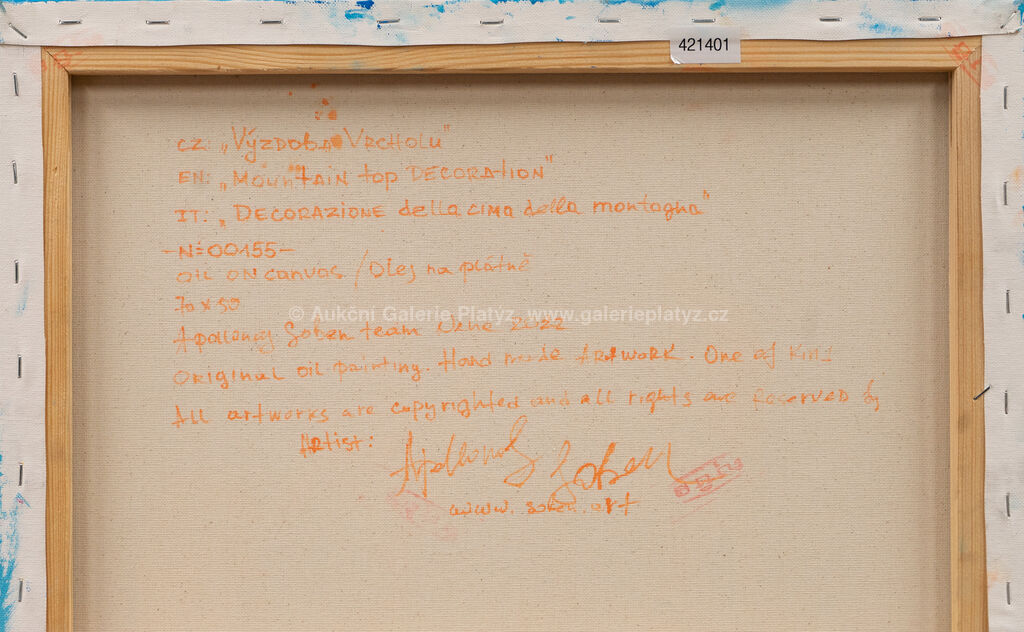 421401
CZ: „Výzdoba Vrcholu"
EN: „Mountain top DECORATION"
IT: „DECORAZIONE della cima della montagna"
-N=00155-
OIL ON canvas / Olej na plátně
70 x 50
© Aukční Galerie Platýz, www.galerieplatyz.cz
Apollonig Soben team 2022
Original oil painting. Hand made Artwork. One of Kind
All artworks are copyrighted and all rights are Reserved by
Artist: Apollonig Soben
www.soben.art